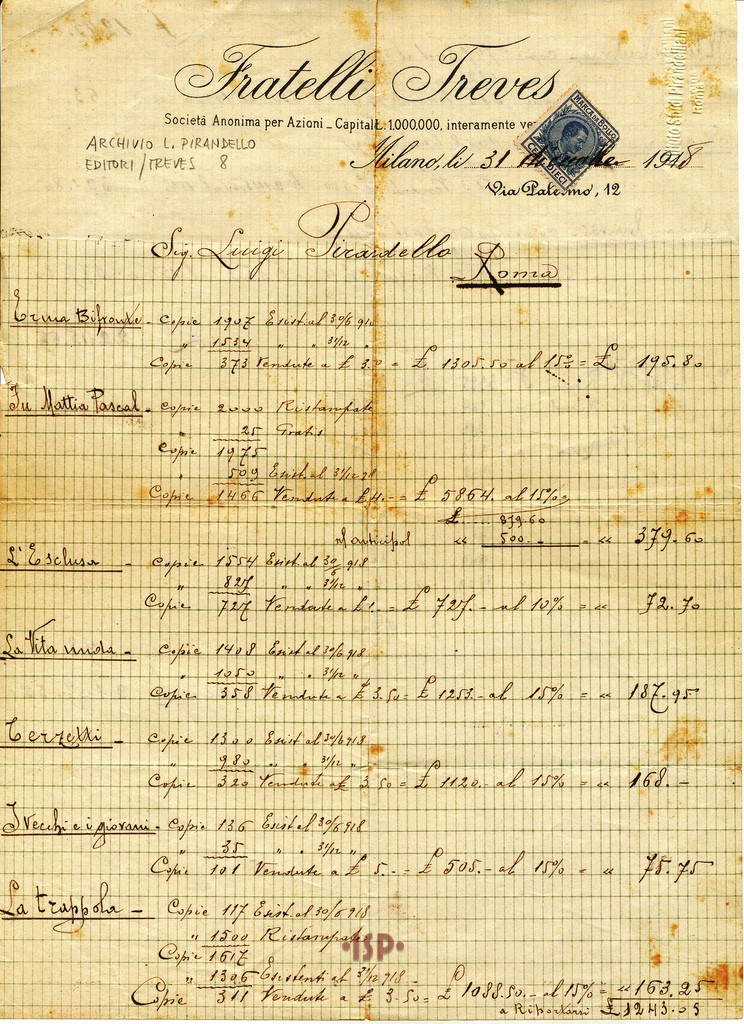 Fratelli Treves
Società Anonima per Azioni - Capitale L. 1.000,000, interamente ve
MARCA DA BOLLO
CENT. DIECI
ARCHIVIO L. PIRANDELLO
EDITORI/TREVES 8
Milano, li 31 dicembre 1918
Via Palermo, 12
Sig. Luigi Pirandello
Roma
Erma Bifronte - Copie 1907 Esist. al 30/6 918
" 1534 " " 31/12 "
Copie 373 Vendute a £ 3.50 = £ 1305.50 al 15% = £ 195.80
Fu Mattia Pascal - Copie 2000 Ristampate
" 25 Gratis
Copie 1975
" 509 Esist. al 31/12 918
Copie 1466 Vendute a £ 4. - = £ 5864. al 15% =
£ 879.60
" 500. - = " 379.60
L'Esclusa - Copie 1554 Esist. al 30/6 918
" 827 " " 31/12 "
Copie 727 Vendute a £ 1. - = £ 727. - al 10% = " 72.70
La Vita nuda - Copie 1408 Esist. al 30/6 918
" 1050 " " 31/12 "
Copie 358 Vendute a £ 3.50 = £ 1253. - al 15% = " 187.95
Terzetti - Copie 1300 Esist. al 30/6 918
" 980 " " 31/12 "
Copie 320 Vendute a £ 3.50 = £ 1120. - al 15% = " 168. -
I Vecchi e i giovani - Copie 136 Esist. al 30/6 918
" 35 " " 31/12 "
Copie 101 Vendute a £ 5. - = £ 505. - al 15% = " 75.75
La trappola - Copie 117 Esist. al 30/6 918
" 1500 Ristampate
Copie 1617
" 1306 Esistenti al 31/12 918 -
Copie 311 Vendute a £ 3.50 = £ 1088.50. - al 15% = " 163.25
a Riportarsi £ 1243.05
ISP